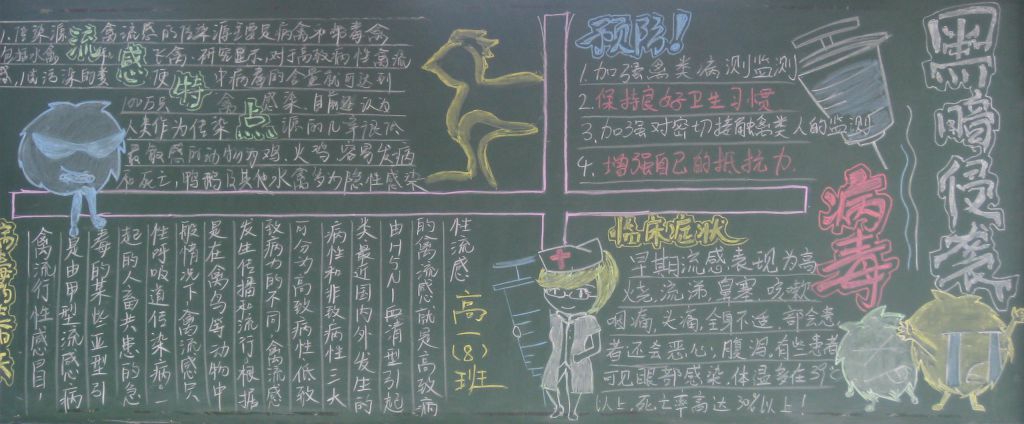 黑暗侵袭
病毒
流感特点
1.传染源：禽流感的传染源主要是病禽
感
100万只
禽
感染.目前难认
人类作为传染
源的几率很低
最敏感的动物为鸡.火鸡.容易发病
死亡,鸭鹅及其他水禽多为隐性感染
预防!
1.加强禽类病测监测
2.保持良好卫生习惯
3.加强对密切接触禽类人的监测
4.增强自己的抵抗力.
禽流行性感冒,
是由甲型流感病
毒的某些亚型引
起的人畜共患的急
性呼吸道传染病。一
般情况下禽流感只
是在禽鸟等动物中
发生传播和流行.根据
致病的不同,禽流感
可分为高致病性低致
病性和非致病性三大
类.最近国内外发生的
由H5N1血清型引起
的禽流感就是高致病
性流感
高一(8)班
临床症状
早期流感表现为高
烧.流涕.鼻塞.咳嗽
咽痛,头痛,全身不适,部分患
者还会恶心;腹泻,有些患者
可见眼部感染.体温多在39℃
以上.死亡率高达30%以上!